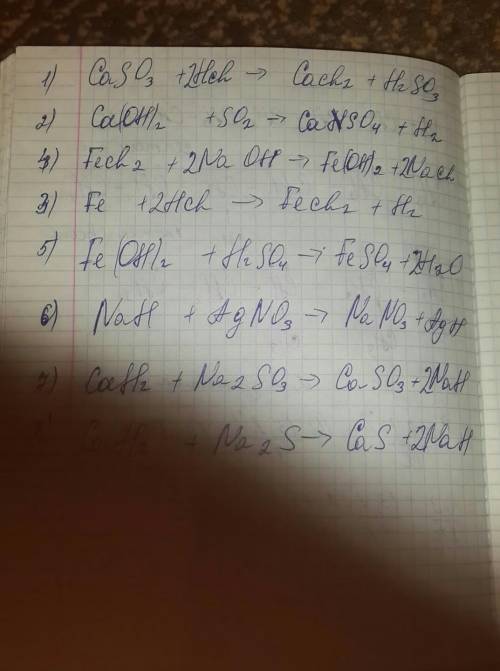 1) CaSO3 + 2HCl → CaCl2 + H2SO3
2) Ca(OH)2 + SO2 → CaSO4 + H2
4) FeCl2 + 2NaOH → Fe(OH)2 + 2NaCl
3) Fe + 2HCl → FeCl2 + H2
5) Fe(OH)2 + H2SO4 → FeSO4 + 2H2O
6) NaH + AgNO3 → NaNO3 + AgH
7) CaH2 + Na2SO3 → CaSO3 + 2NaH
+ Na2S → CaS + 2NaH